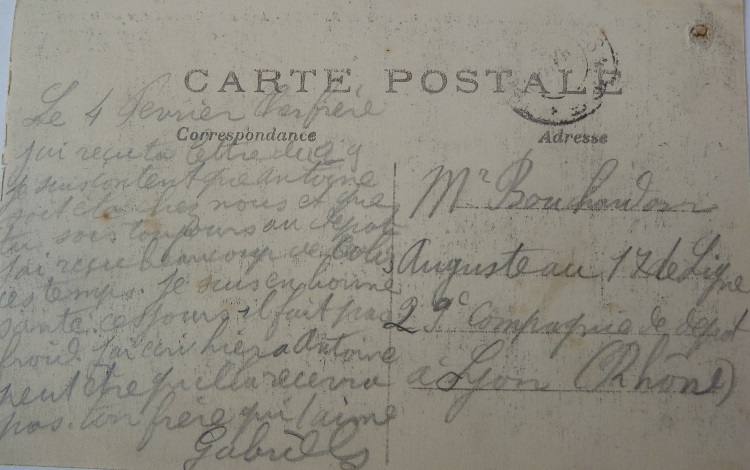 CARTE POSTALE
Correspondance
Le 4 Fevrier cher frère
jai reçu ta lettre du 29
je suis content que Antoine
soit chez nous et que
tu sois toujours au depot
jai reçu beaucoup de Colis
ces temps. Je suis en bonne
santé. ces jours il fait pas
froid jai hier a Antoine
peut etre quil la recevra
pas. ton frère qui taime
Gabriel
Adresse
Mr
Auguste au 17 de Ligne
29e Compagnie de depot
à Lyon (Rhône)